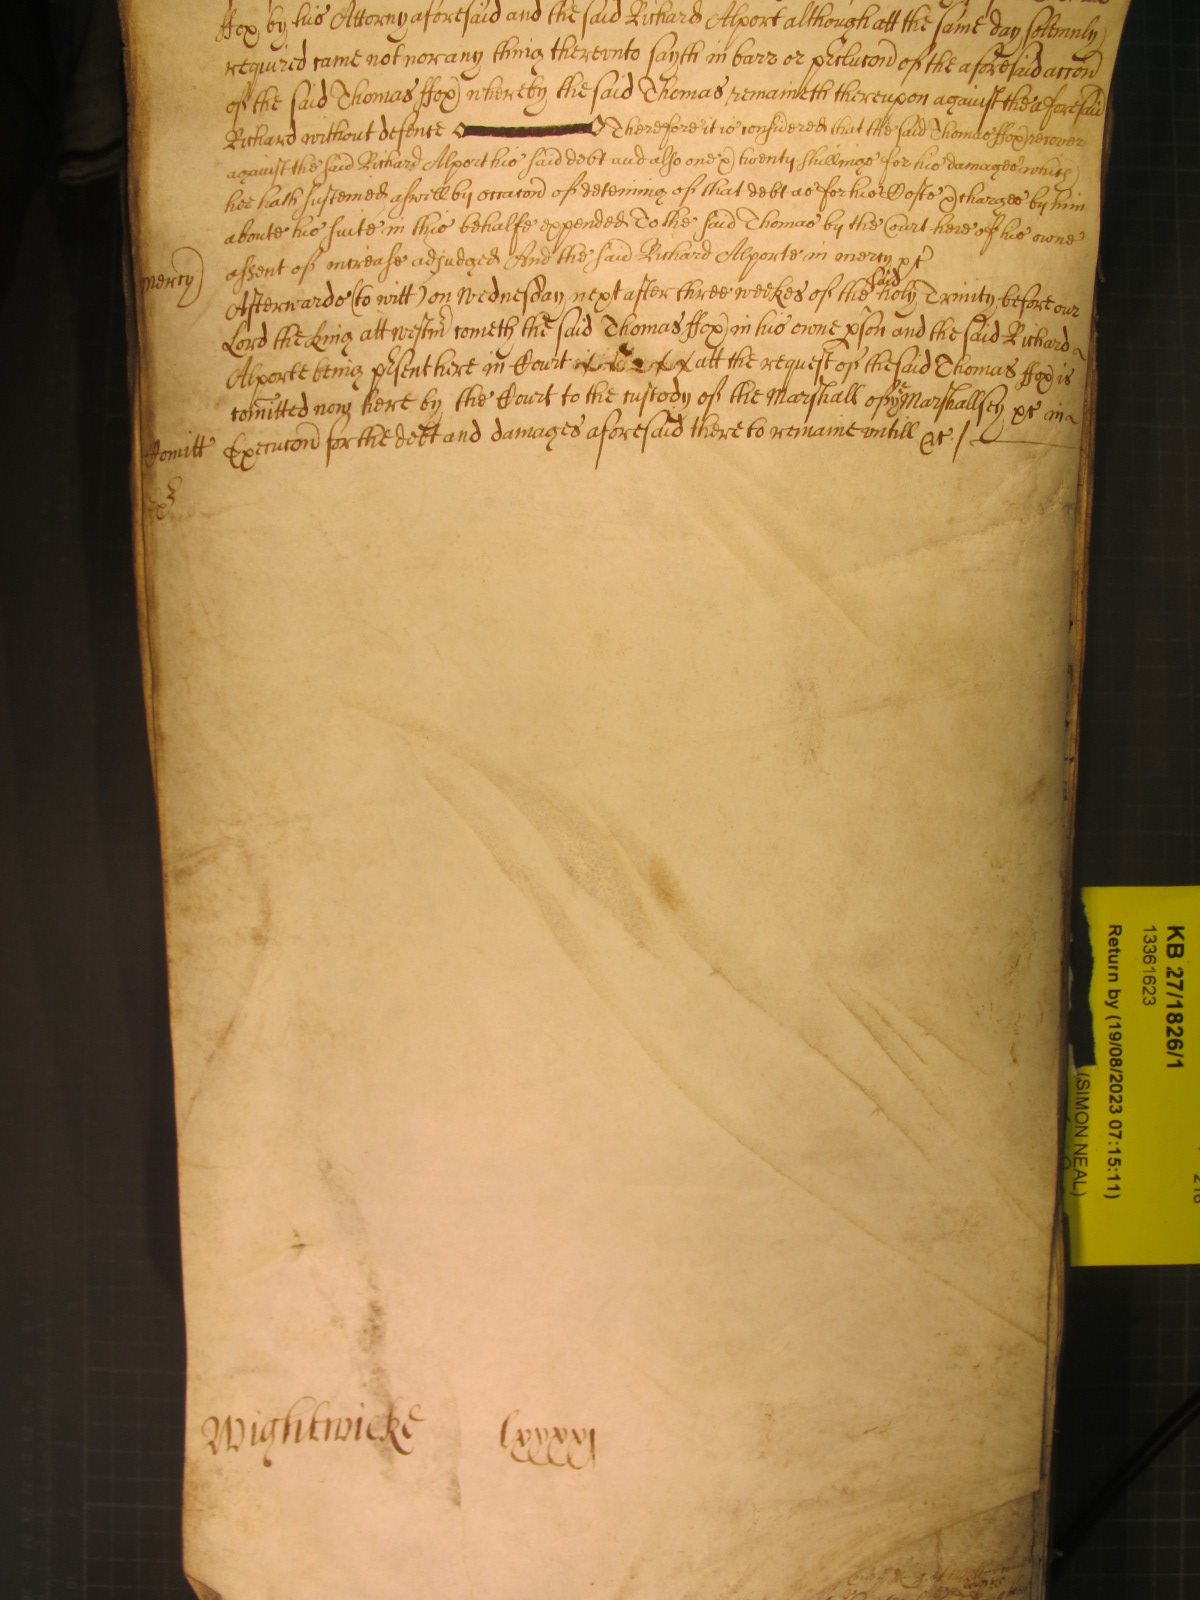 ffox by his Attorney aforesaid and the said Richard Alport although att the same day solemnly
required came not nor any thing thereunto sayth in barr or preclucon of the aforesaid accon
of the said Thomas ffox whereby the said Thomas remaineth thereupon against the aforesaid
Richard without defence Therefore it is considered that the said Thomas ffox recover
against the said Richard Alport his said debt and also one & twenty shillings for his damages which
hee hath susteined aswell by occacon of deteining of that debt as for his Costs & charges by him
aboute his suite in this behalfe expended To the said Thomas by the Court here of his owne
assent of increase adjudged And the said Richard Alporte in mercy &c
mercy
Afterwards (to witt) on Wednesday next after three weekes of the said holy Trinity before our
Lord the King att westm cometh the said Thomas ffox in his owne pson and the said Richard
Alporte being psent here in Court att the request of the said Thomas ffox is
comitted now here by the Court to the custody of the Marshall of ye Marshallsey &c in
Comitt Execucon for the debt and damages aforesaid there to remaine untill &c /
Wightwicke lxxxxi
KB 27/1826/1
13361623
Return by (19/08/2023 07:15:11)
(SIMON NEAL)